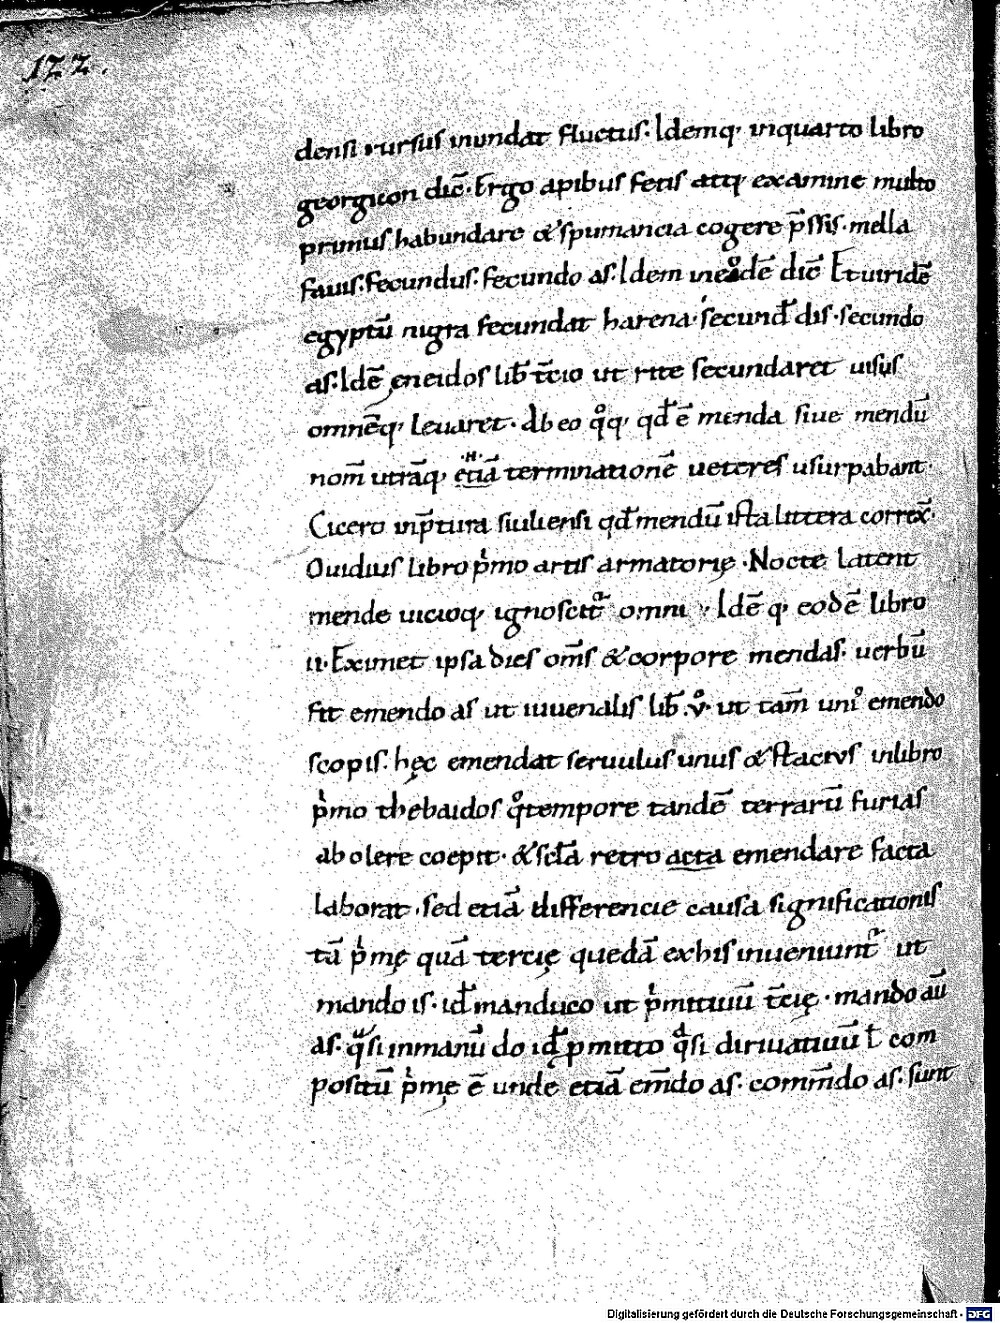 122.
densi rursus inundat fluctus. Idemq; inquarto libro
georgicon dic̄. Ergo apibus fetis atq; examine multo
primus habundare & spumancia cogere p̄ssis. mella
fauis. fecundus. fecundo as. Idem in eodē dic̄ Et uiridē
egyptū nigra fecundat harena. secund᷎ dis. secundo
as. Idē ęneidos lib̄ t̄cio ut rite secundaret uisus
omnēq; leuaret. Ab eo qͦq; qd̄ ē menda siue mendū
nom̄ utrāq; .N. etiā terminationē ueteres usurpabant.
Cicero inp̄tura siciliensi qd̄ mendū ista littera correx̄.
Ouidius libro pͥmo artis armatorię. Nocte latent
mende uicioq; ignoscit᷑ omni. Idē q; eodē libro
ii. Eximet ipsa dies om̄s & corpore mendas. uerbū
fit emendo as ut iuuenalis lib̄ .v. ut tam̄ uniꝰ emendo
scopis. hęc emendat seruulus unus & stacivs inlibro
pͥmo thebaidos qͦ tempore tandē terrarū furias
abolere coepit. & sc̄tā retro acta emendare facta
laborat. sed etiā differencie causa significationis
tā pͥmę quā tercię quedā exhis inueniunt᷑ ut
mando is. id᷎ manduco ut pͥmitiuū t̄cię. mando aū
as. qͣsi in manū do id᷎ pmitto qͣsi diriuatiuū ł com
positū pͥmę ē unde etiā em̄do as. comm̄do as. sunt
Digitalisierung gefördert durch die Deutsche Forschungsgemeinschaft - DFG